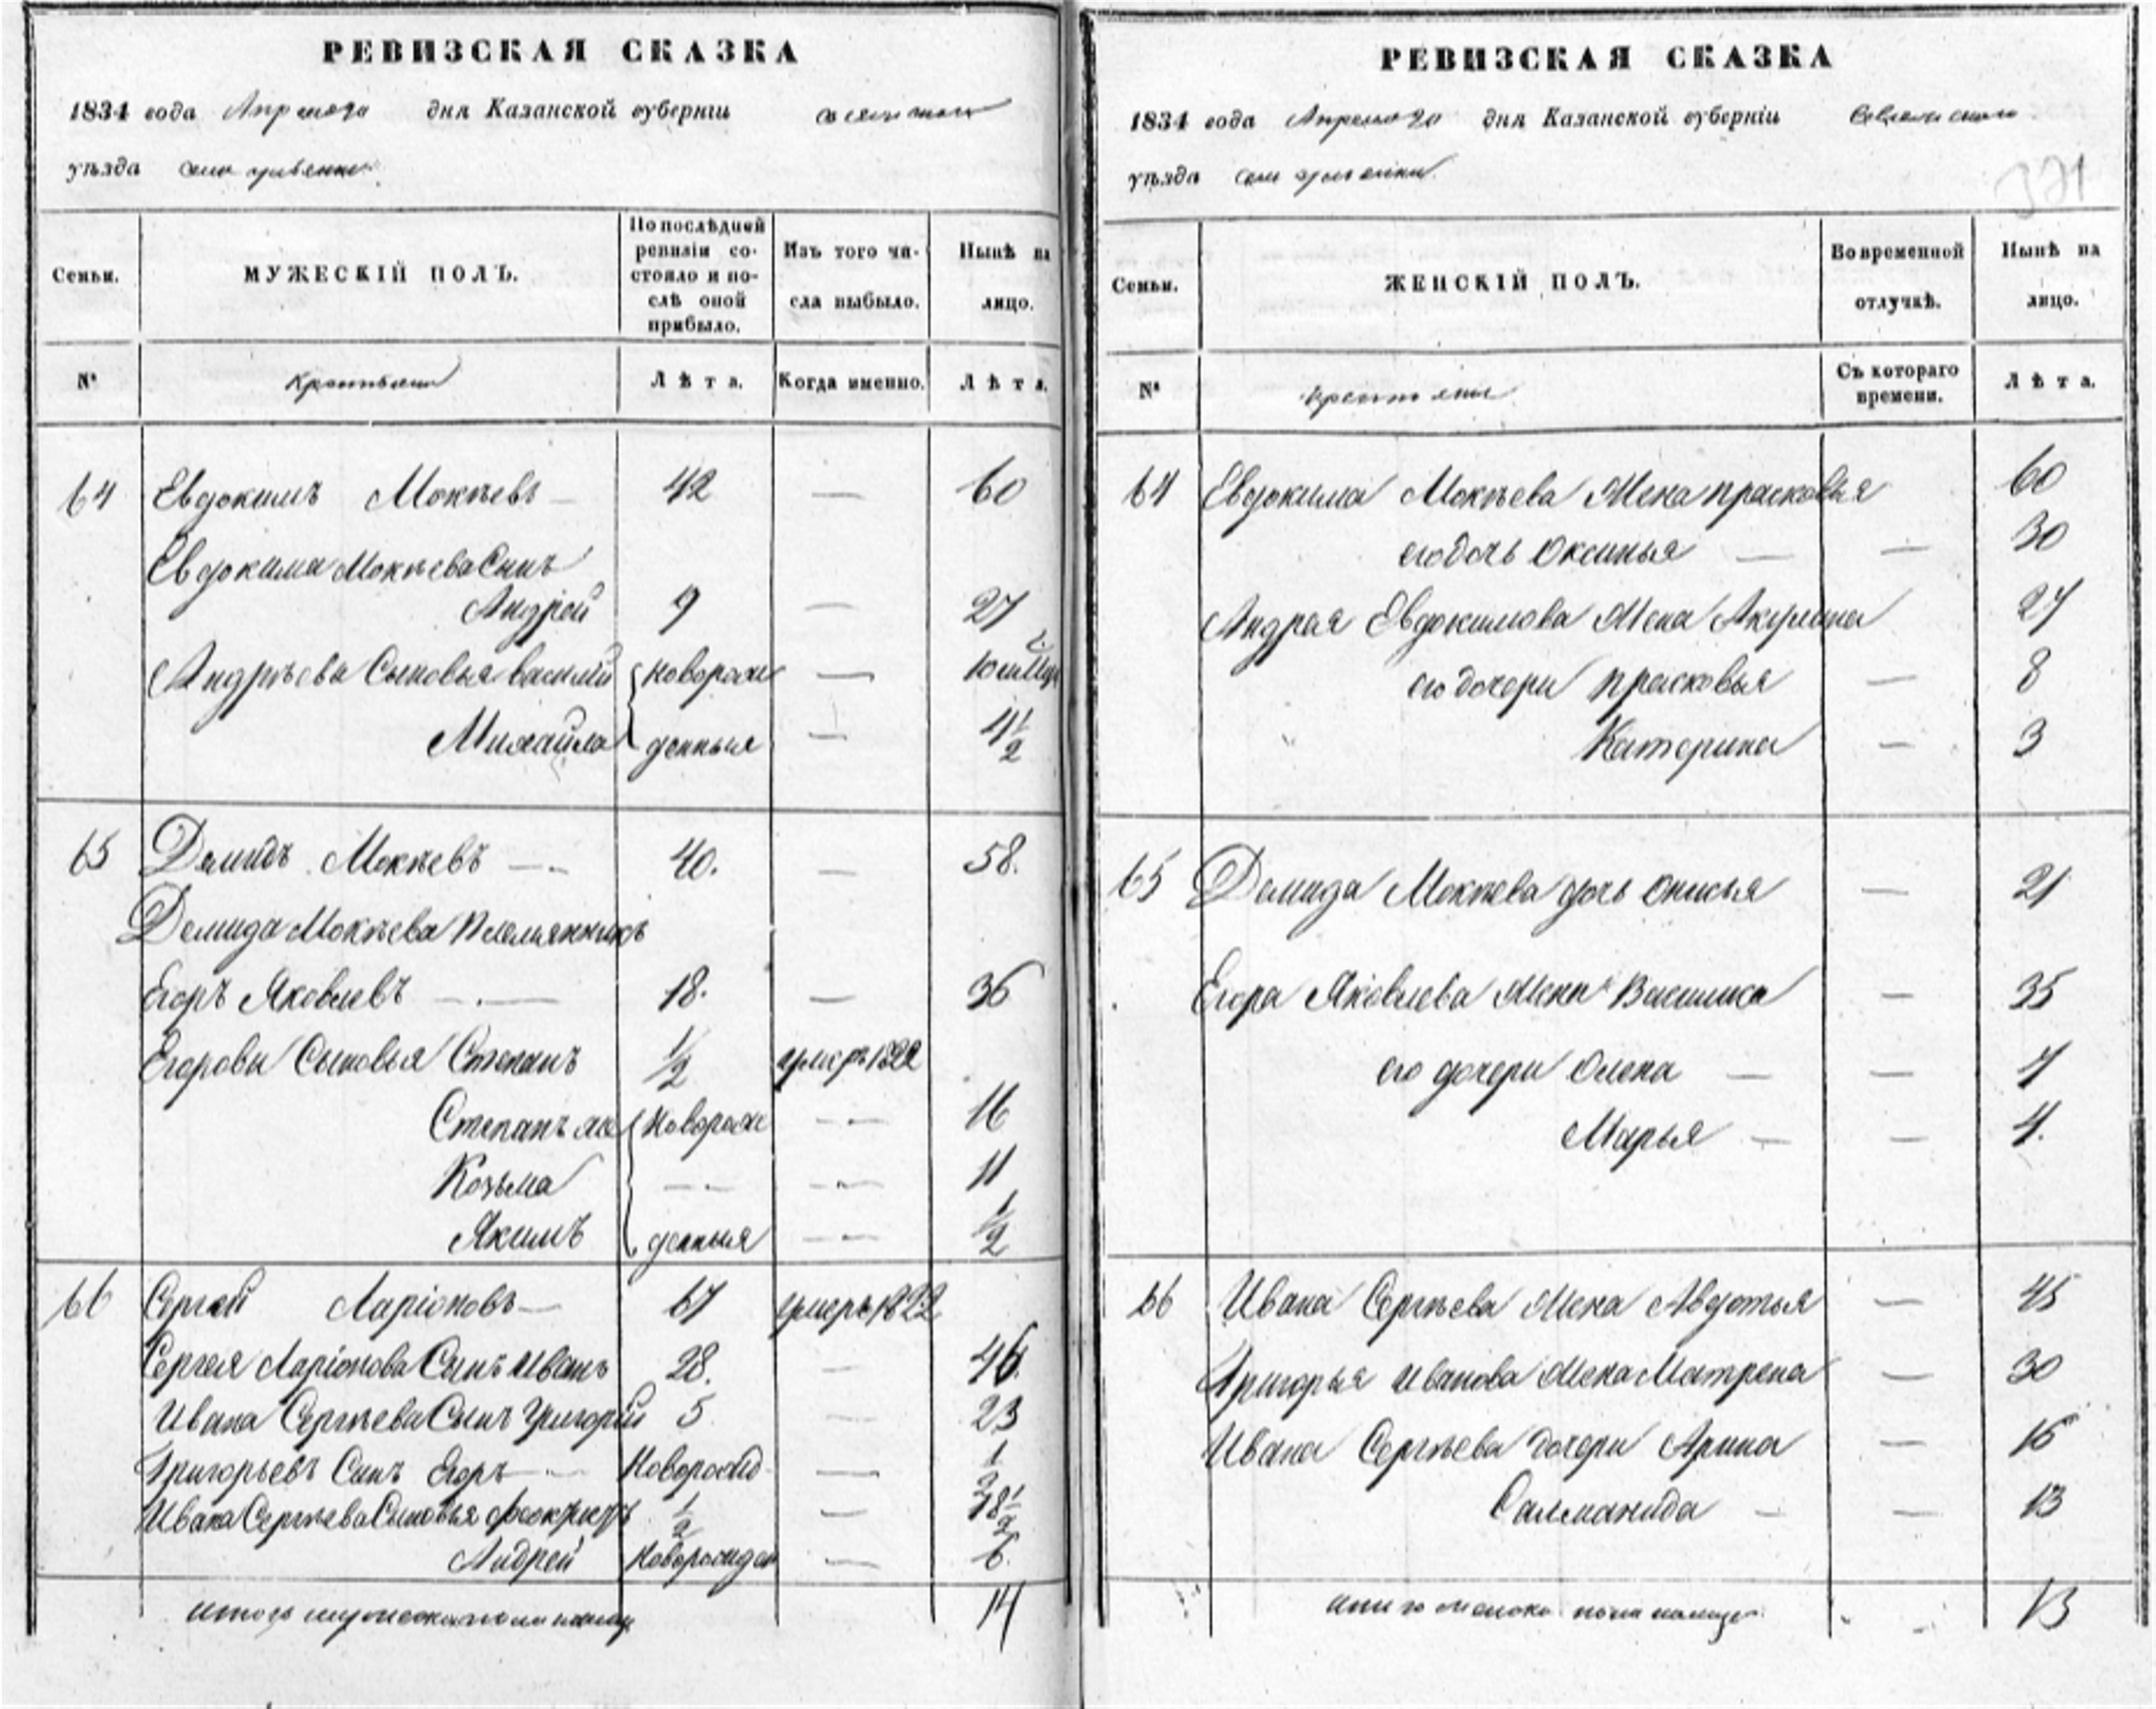 РЕВИЗСКАЯ СКАЗКА
1834 года Апреля 20 дня Казанской губерніи
уѣзда села
Семьи.
МУЖЕСКІЙ ПОЛЪ.
По послѣдней ревизіи состояло и послѣ оной прибыло.
Изъ того числа выбыло.
Нынѣ на лицо.
№
Крестьяне
Лѣта.
Когда именно.
Лѣта.
64 Евдокимъ Мокѣевъ — 42 — 60
Евдокима Мокѣева Сынъ
Андрей 9 — 27
Андрѣевы Сыновья василий новорож —
Михайла денныя — 4 1/2
65 Демидъ Мокѣевъ — 40. — 58.
Демида Мокѣева Племянникъ
Егоръ Яковлевъ — 18. — 36
Егоровы Сыновья Степанъ 1/2 умеръ 1822
Степанъ же Новорож — 16
Козьма — — 11
Якимъ денныя — 1/2
66 Сергей Ларіоновъ — 67 умеръ 1822
Сергея Ларіонова Сынъ Иванъ 28. — 46.
Ивана Сергѣева Сынъ Григорий 5 — 23
Григорьевъ Сынъ Егоръ — Новорожд — 1/2
Ивана Сергѣева Сыновья 1/2 — 18 1/2
Андрей Новорожден — 6.
Итого мужеска пола на лицо 14
РЕВИЗСКАЯ СКАЗКА
1834 года Апреля 20 дня Казанской губерніи
уѣзда села
371
Семьи.
ЖЕНСКІЙ ПОЛЪ.
Во временной отлучкѣ.
Нынѣ на лицо.
№
крестьяне
Съ котораго времени.
Лѣта.
64 Евдокима Мокѣева Жена прасковья 60
его дочь Оксинья — — 30
Андрея Евдокимова Жена Акулина 27
его дочери прасковья — 8
Катерина — 3
65 Демида Мокѣева дочь Онисья — 21
Егора Яковлева Жена Василиса — 35
его дочери Олена — — 7
Марья — — 4.
66 Ивана Сергѣева Жена Авдотья — 45
Григорья Иванова Жена Матрена — 30
Ивана Сергѣева дочери Арина — 16
Саломанида — — 13
Итого женска пола на лицо 13